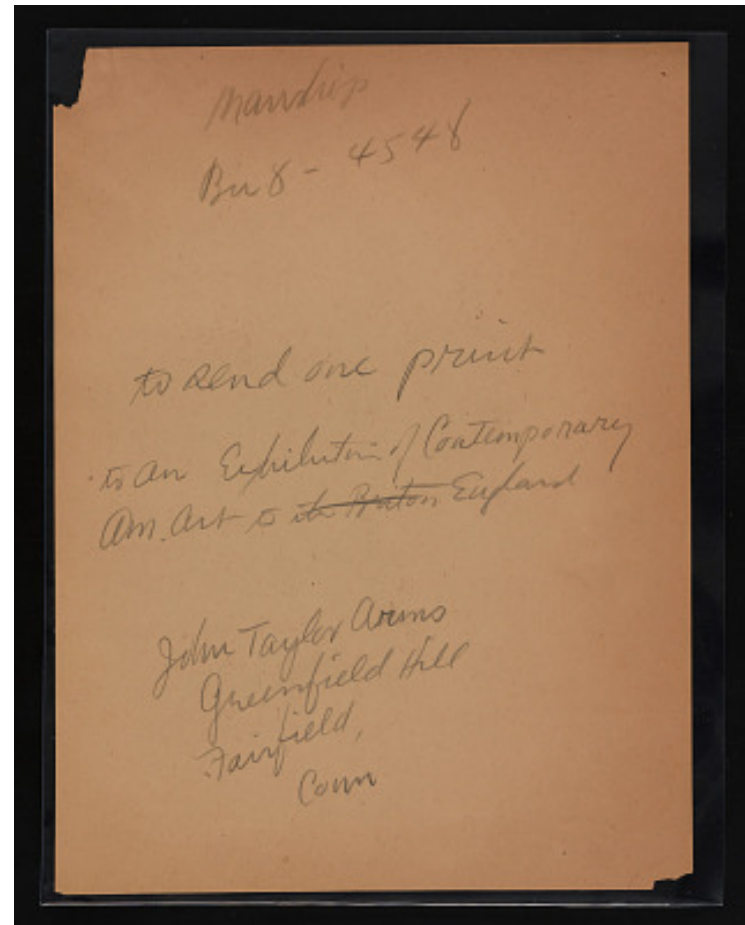 Bu 8 - 4548
to send one print
to an Exhibition of Contemporary
Am. Art to ~~the Briton~~ England
John Taylor Arms
Greenfield Hill
Fairfield,
Conn